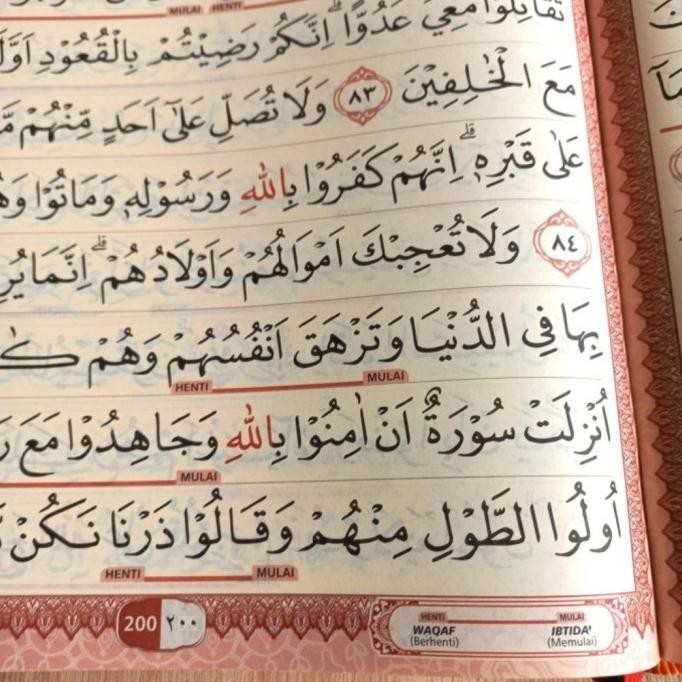 MULAI HENTI
تُقَاتِلُوْا مَعِيَ عَدُوًّاۗ اِنَّكُمْ رَضِيْتُمْ بِالْقُعُوْدِ
مَعَ الْخٰلِفِيْنَ ٨٣ وَلَا تُصَلِّ عَلٰٓى اَحَدٍ مِّنْهُمْ
عَلٰى قَبْرِهٖۗ اِنَّهُمْ كَفَرُوْا بِاللّٰهِ وَرَسُوْلِهٖ وَمَاتُوْا
٨٤ وَلَا تُعْجِبْكَ اَمْوَالُهُمْ وَاَوْلَادُهُمْۗ اِنَّمَا
بِهَا فِى الدُّنْيَا وَتَزْهَقَ اَنْفُسُهُمْ وَهُمْ
HENTI MULAI
اُنْزِلَتْ سُوْرَةٌ اَنْ اٰمِنُوْا بِاللّٰهِ وَجَاهِدُوْا مَعَ
MULAI
اُولُوا الطَّوْلِ مِنْهُمْ وَقَالُوْا ذَرْنَا نَكُنْ
HENTI MULAI
200 ٢٠٠
HENTI MULAI
WAQAF IBTIDA'
(Berhenti) (Memulai)